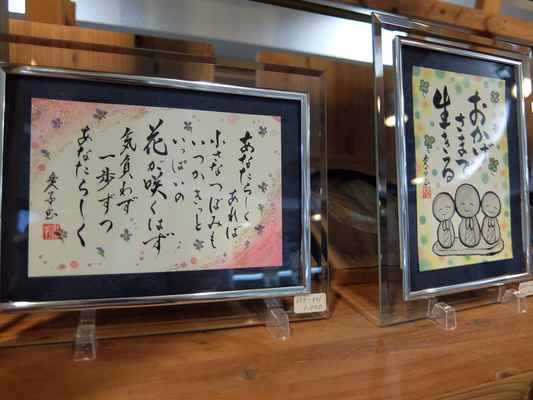 あなたらしく
あれば
小さなつぼみも
いつかきっと
いっぱいの
花が咲くはず
気負わず
一歩ずつ
あなたらしく
おかげ
さまで
生きる